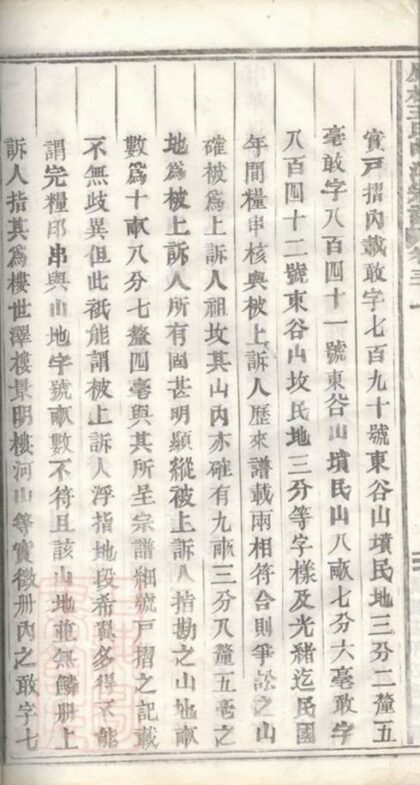 實戸摺內載敢字七百九十號東谷山墳民地三分二釐五
毫敢字八百四十一號東谷山墳民山八畝七分六毫敢字
八百四十二號東谷山坟民地三分等字樣及光緒迄民國
年間糧串核與被上訴人歷來譜載兩相符合則爭訟之山
確被爲上訴人祖坟其山內亦確有九畝三分八釐五毫之
地爲被上訴人所有固甚明顯縱被上訴人指勘之山地畝
數爲十畝八分七釐四毫與其所呈宗譜細號戸摺之記載
不無歧異但此衹能謂被上訴人浮指地段希冀多得不能
謂完糧印串與山地字號畝數不符且該山地並無鱗册上
訴人指其爲樓世澤樓景明樓河山等實徵册內之敢字七